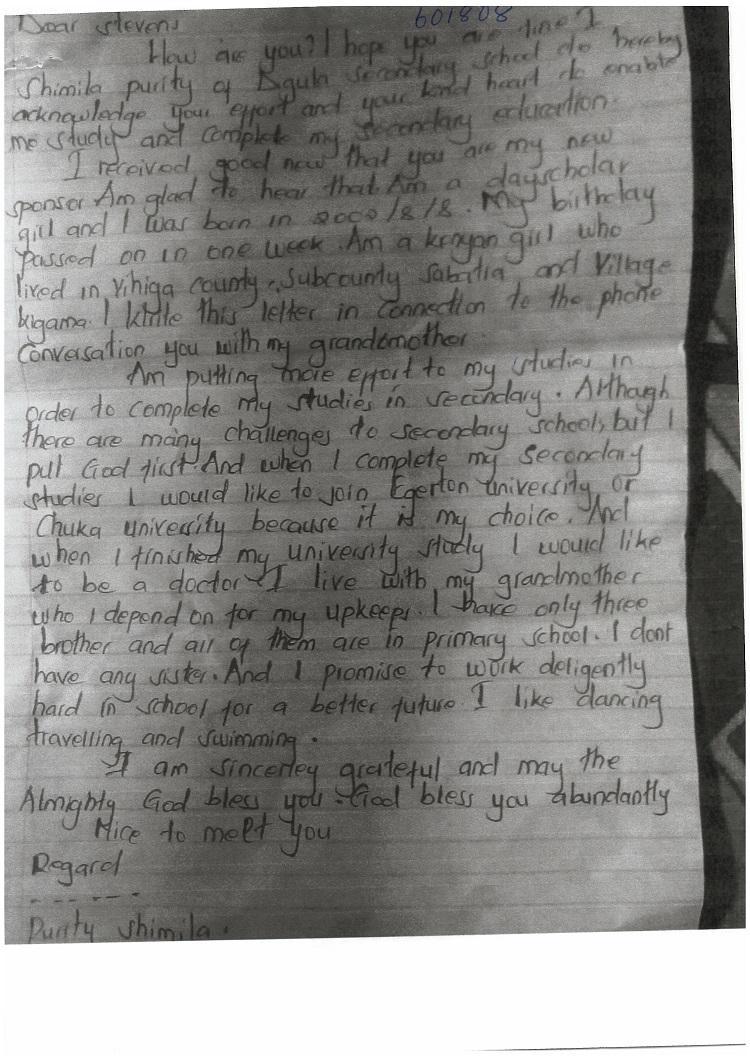 601808
Dear stevens
How are you? I hope you are fine I
Shimila purity of secondary school do hereby
acknowledge your effort and your kind heart to enable
me study and complete my secondary education.
I received good new that you are my new
sponsor Am glad to hear that Am a dayscholar
girl and I was born in 2000/8/8. My birthday
passed on in one week. Am a kenyan girl who
lived in Vihiga county, Subcounty Sabatia and Village
kigama. I Write this letter in connection to the phone
conversation you with my grandmother.
Am putting more effort to my studies in
order to complete my studies in secondary. Although
there are many challenges to secondary schools, but I
put God first And when I complete my Secondary
studies I would like to join Egerton university or
Chuka university because it is my choice. And
when I finished my university study I would like
to be a doctor I live with my grandmother
who I depend on for my upkeeps. I have only three
brother and all of them are in primary school. I dont
have any sister. And I promise to work deligently
hard in school for a better future I like dancing
travelling and swimming.
I am sincerley grateful and may the
Almighty God bless you. God bless you abundantly
Nice to meet you
Regard
- - - - - -
Purity Shimila.